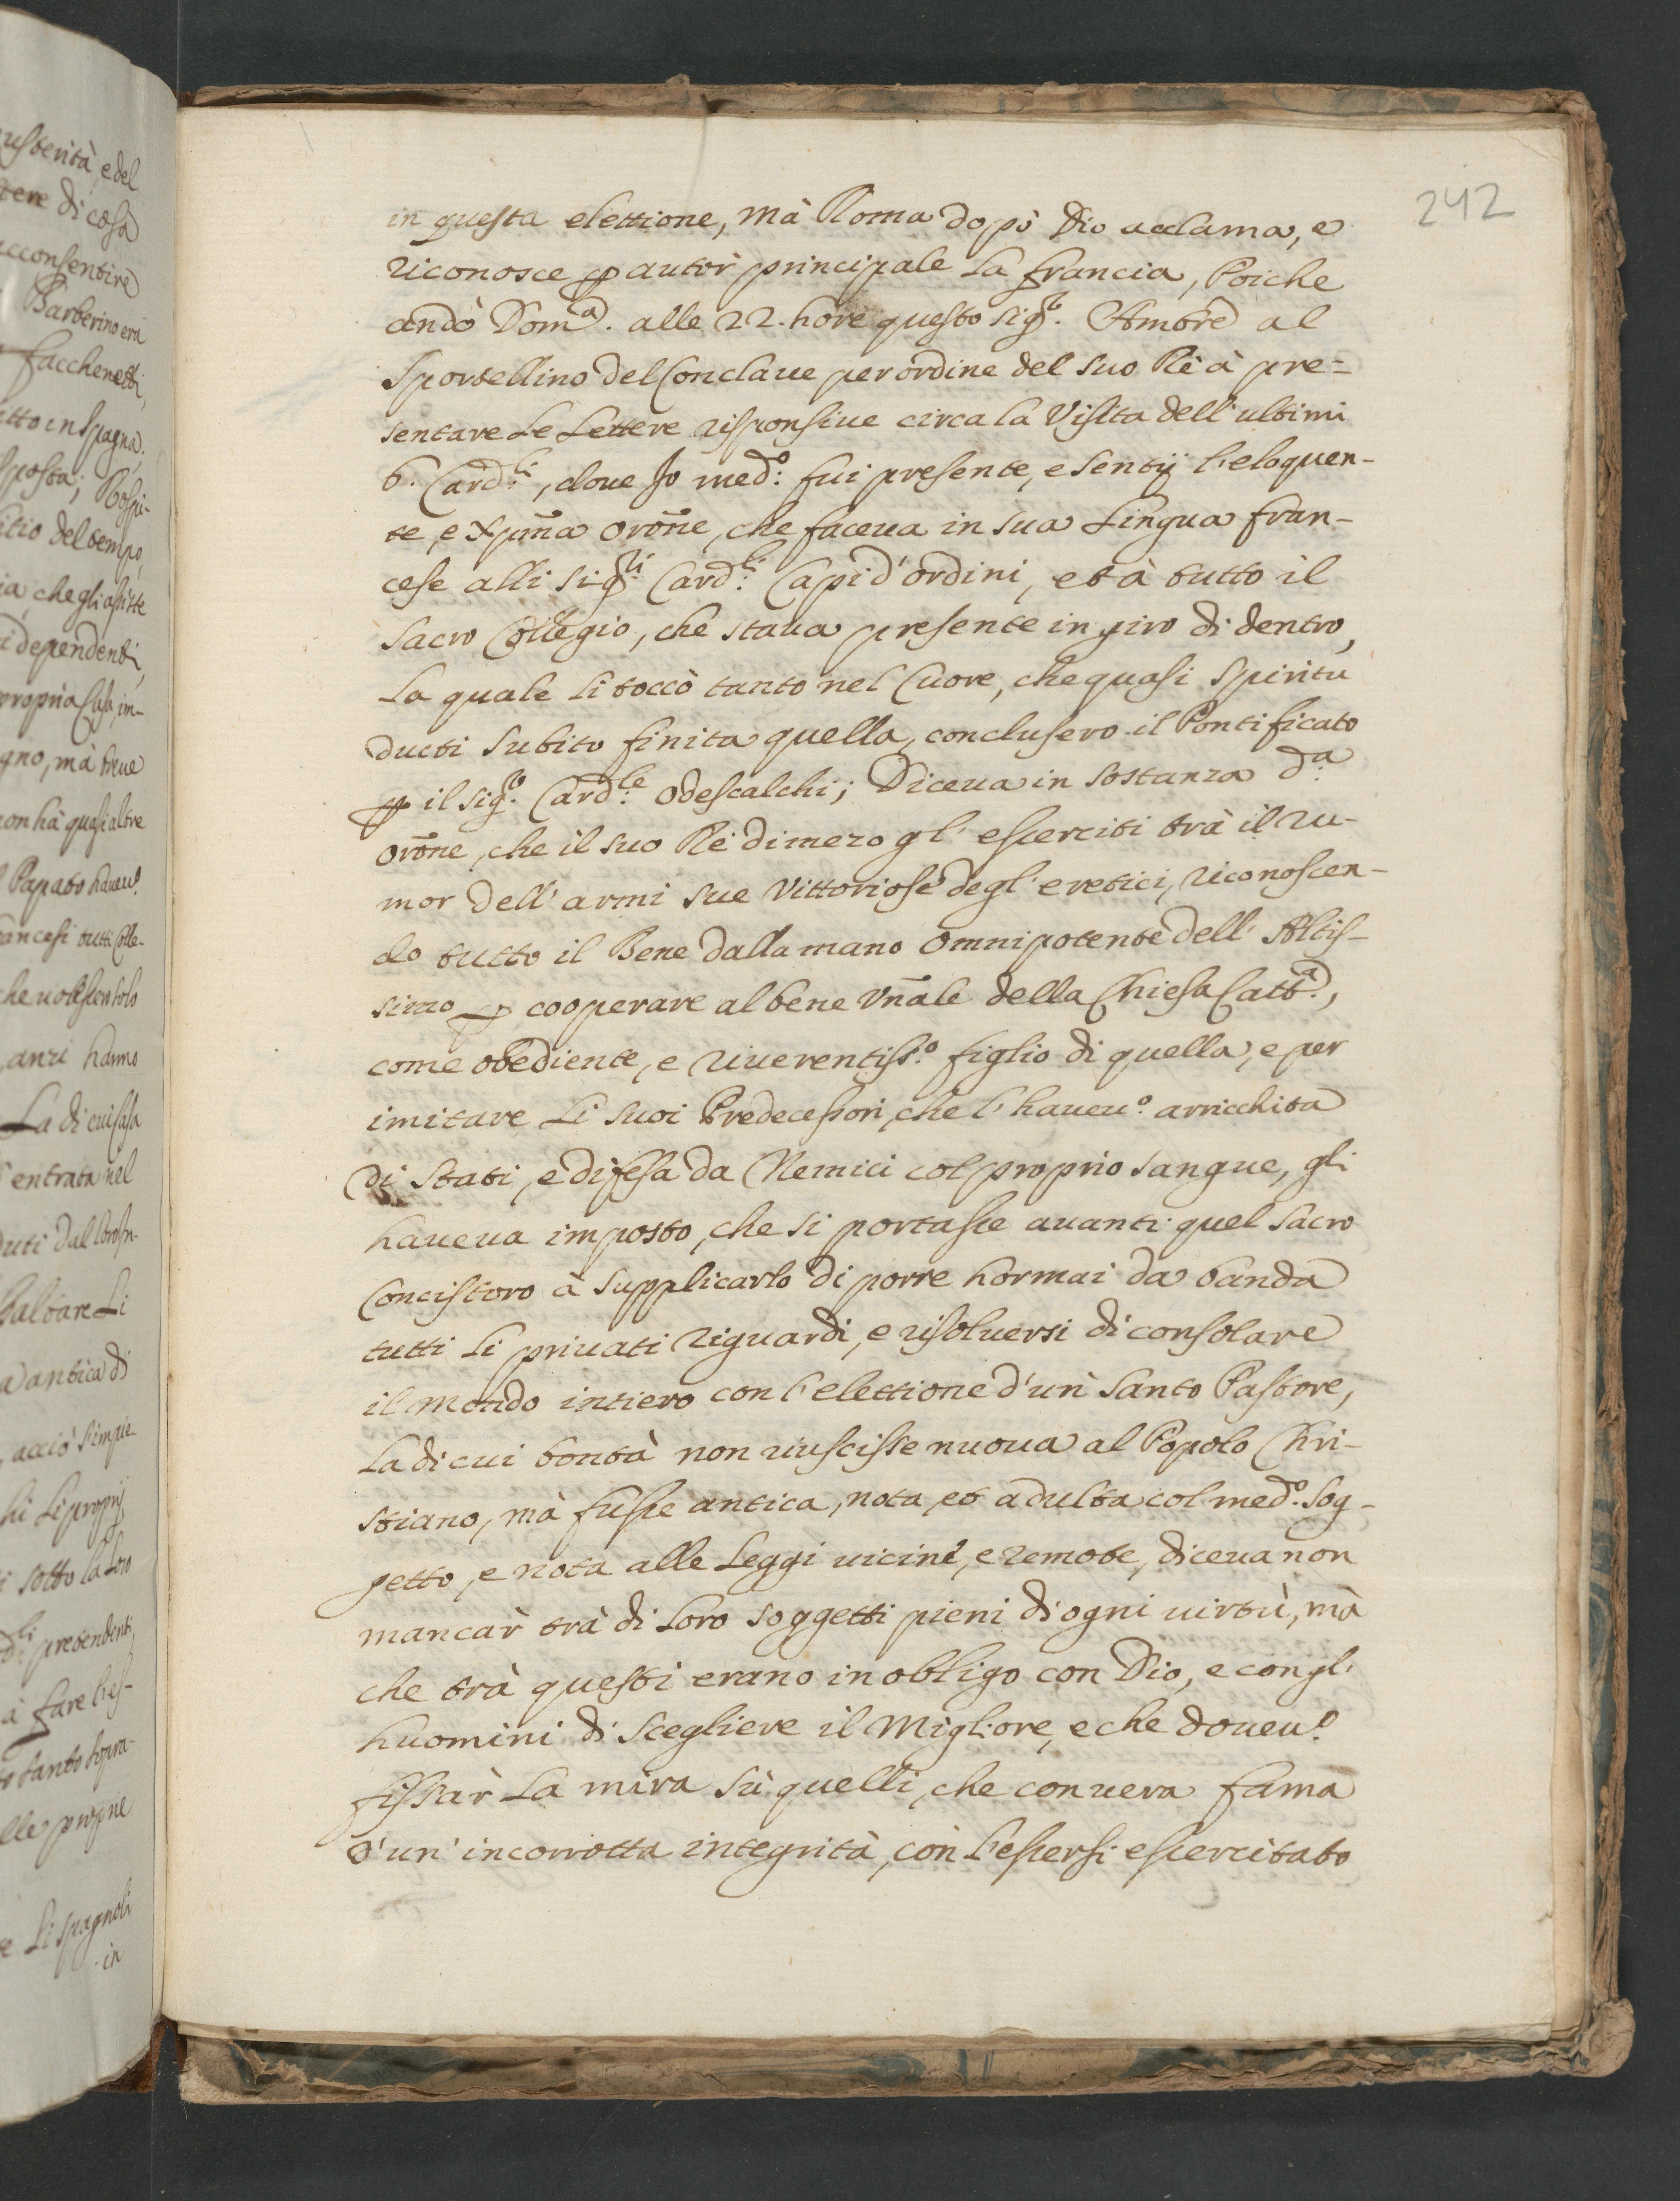 242
in questa elettione, mà Roma dopò Dio acclama, e
riconosce ꝑ autor principale la francia, Poiche
andò Dom.ª alle 22. hore questo sig.r Amb.re al
sportellino del Conclaue per ordine del suo Rè à pre=
sentare le lettere risponsiue circa la Visita dell' ultimi
6. Card.li, doue Io med.o fui presente, e sentij l'eloquen-
te, e xp̃ma orõne, che faceua in sua lingua fran-
cese alli sig.ri Card.li Capi d'ordini, et à tutto il
sacro Collegio, che staua presente in giro di dentro,
la quale li toccò tanto nel Cuore, che quasi spiritu
ducti subito finita quella, conclusero il Pontificato
ꝑ il sig.r Card.le Odescalchi; Diceua in sostanza d.ª
orõne, che il suo Rè di mezo gl' esserciti trà il ru-
mor dell' armi sue Vittoriose degl' eretici, riconoscen-
do tutto il Bene dalla mano omnipotente dell' Altis-
simo ꝑ cooperare al bene vñale della Chiesa Catt.ª,
come obediente, e riuerentiss.o figlio di quella, e per
imitare li suoi Predecessori, che l'haueu.o arricchita
di stati, e difesa da Nemici col proprio sangue, gli
haueua imposto, che si portasse auanti quel sacro
Concistoro à supplicarlo di porre hormai da banda
tutti li priuati riguardi, e risoluersi di consolare
il mondo intiero con l'elettione d'un santo Pastore,
la di cui bontà non riuscisse nuoua al Popolo Chri-
stiano, mà fusse antica, nota, et adulta col med.o sog-
getto, e nota alle leggi uicine, e remote, diceua non
mancar trà di loro soggetti pieni di ogni uirtù, mà
che trà questi erano in obligo con Dio, e con gl'
huomini di scegliere il Migliore, e che doueu.o
fissar la mira sù quelli, che con uera fama
d'un' incorrotta integrità, con l'essersi essercitato